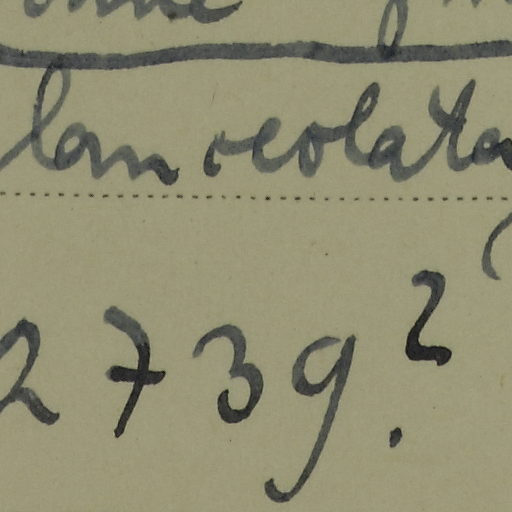 lanceolata
2739?